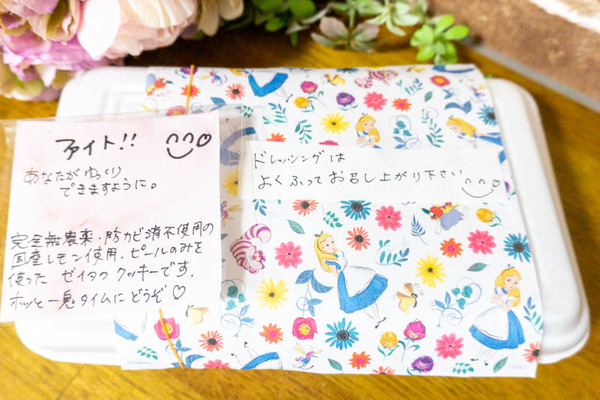 ファイト!!
あなたがゆっくり
できますように。
完全無農薬・防カビ済不使用の
国産レモン使用。ピールのみを
使った ゼイタククッキーです。
ホッと一息タイムにどうぞ♡
ドレッシングは
よくふってお召し上がり下さい